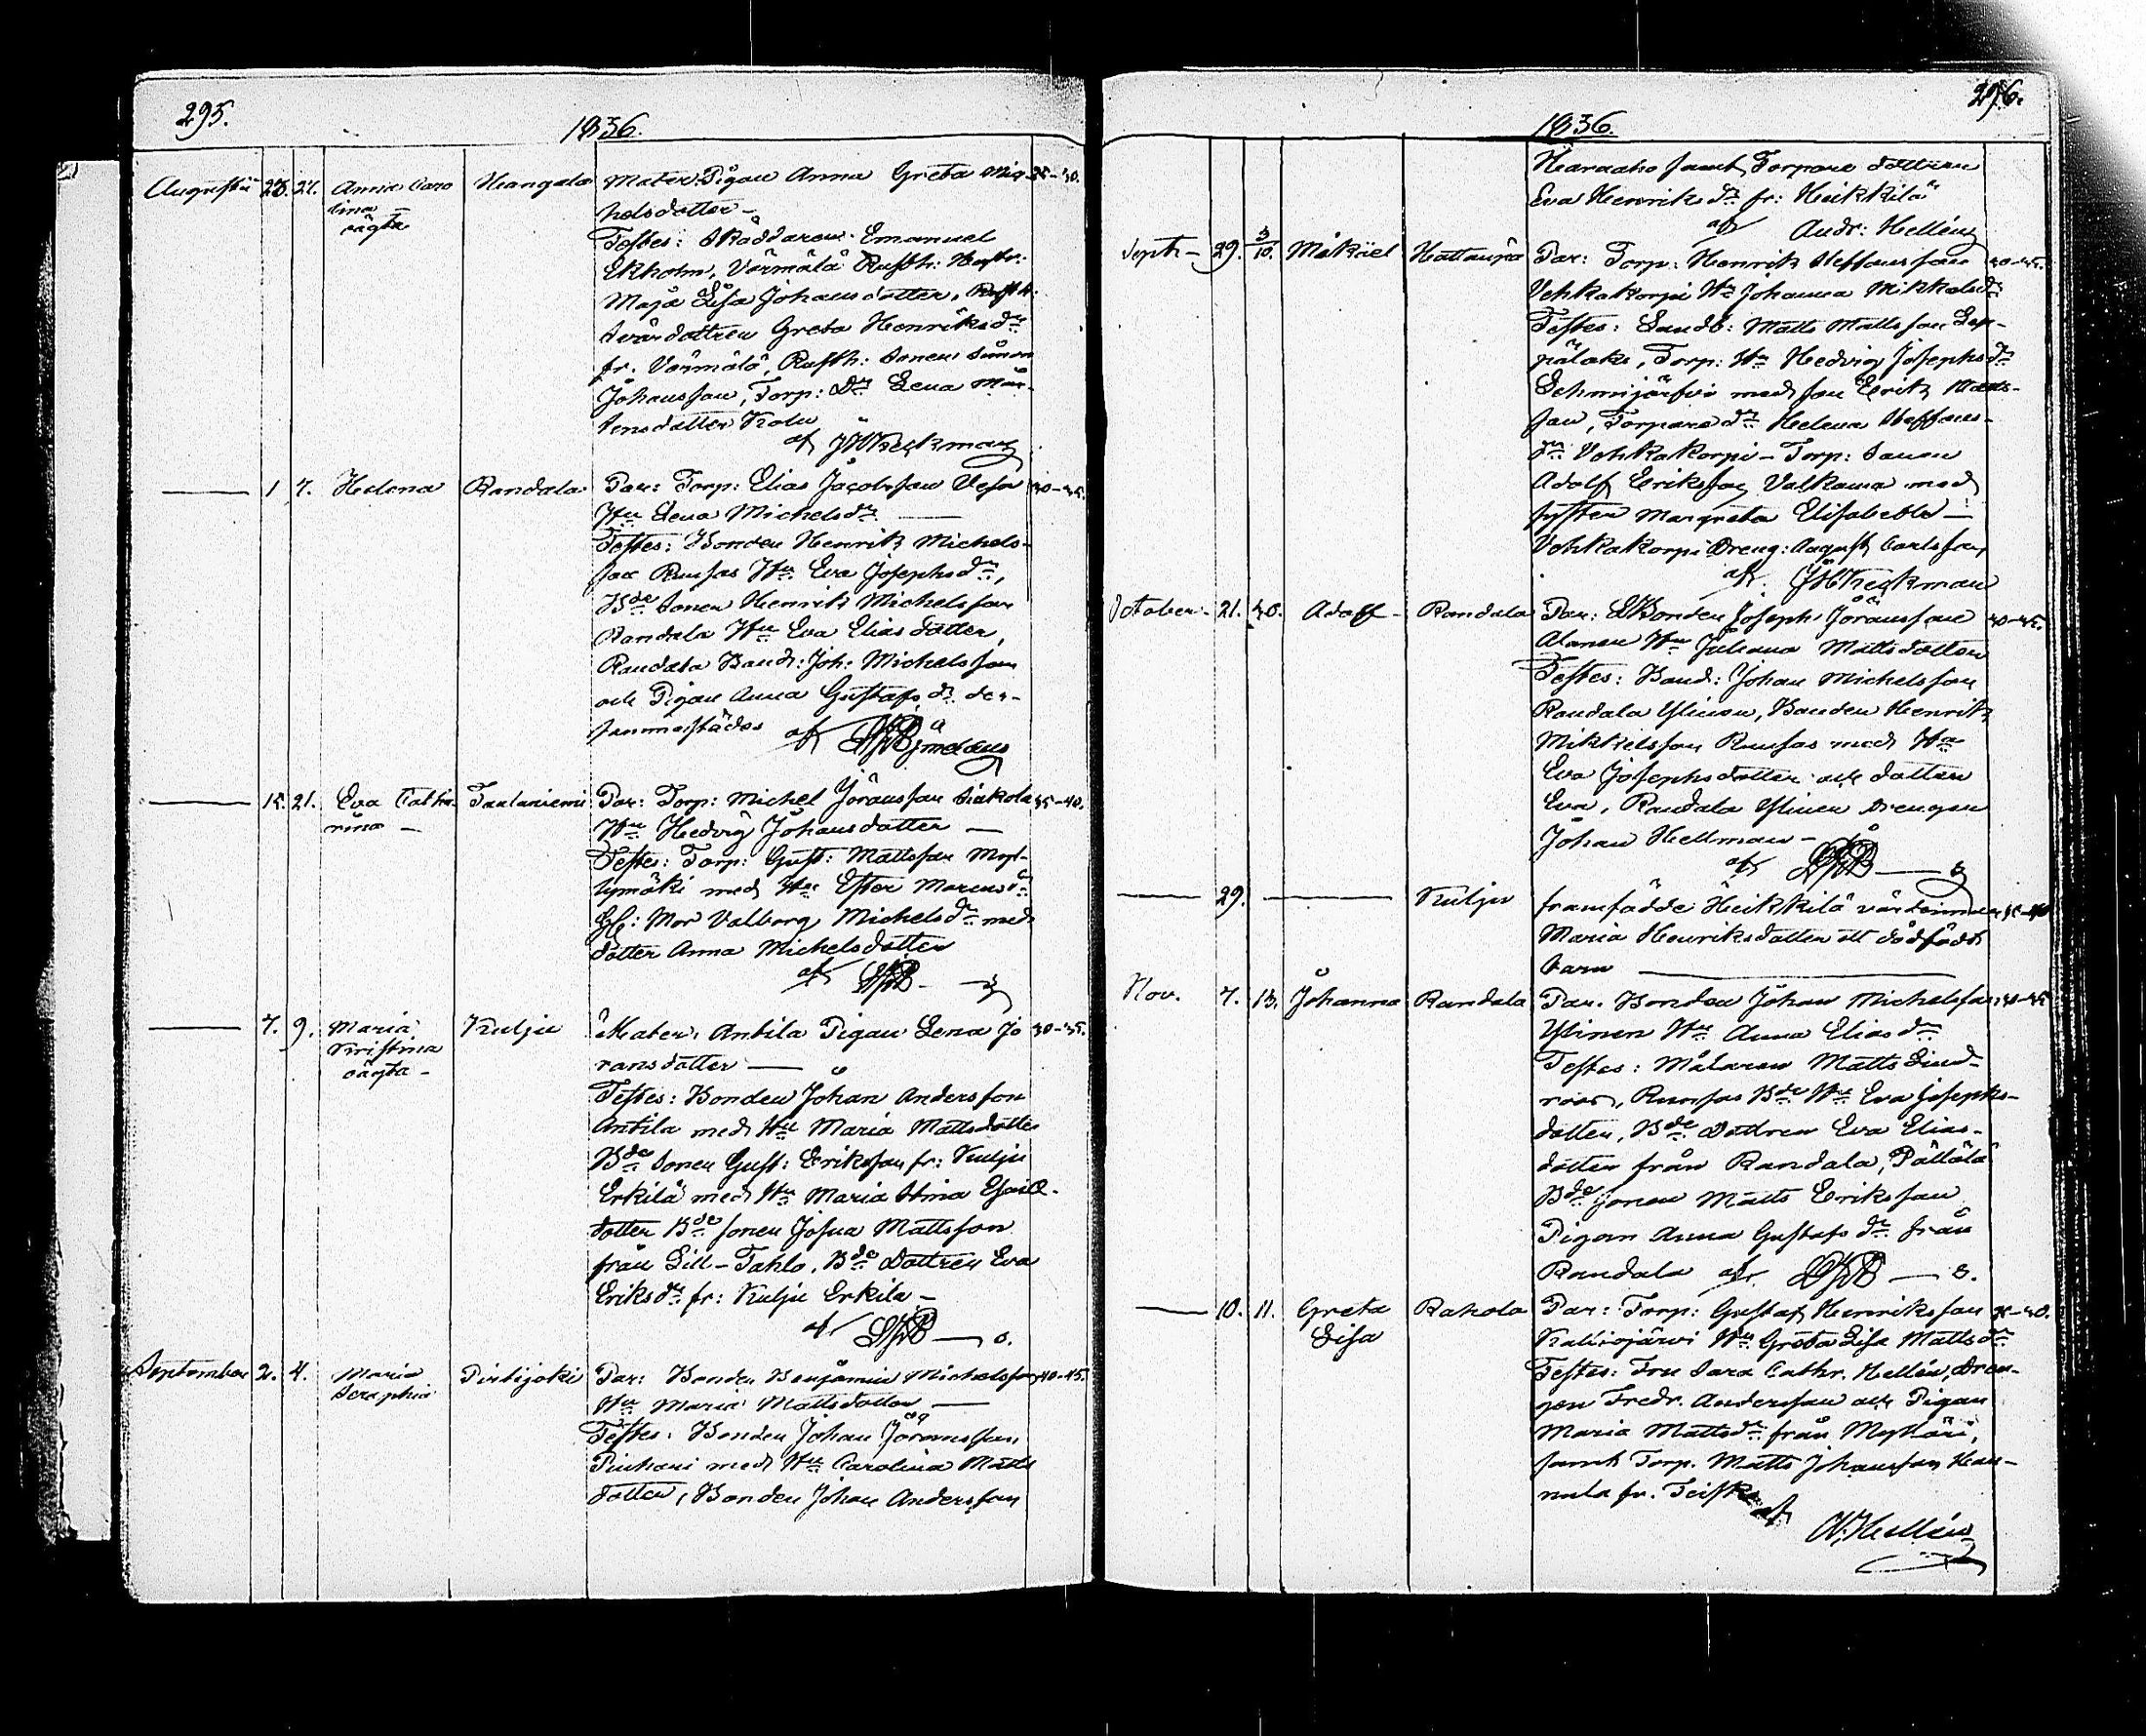 295.
1836.
Augusti 23. 27. Anna Caro Kangala Mater: Pigan Anna Greta Mic 35-40.
lina — helsdotter —
oägta
Testes: Skräddaren Emanuel
Ekholm, Värmälä Rusth: Hustr:
Maja Lisa Johansdotter, Rusth:
svärdottren Greta Henriksdr
fr. Värmälä, Rusth: Sonen Simon
Johansson, Torp: Dr Lena Mår-
tensdotter Kolu
af JHVeckman
— 1 7. Helena Randala Par: Torp: Elias Jacobsson Vesa 30-35.
Hu Lena Michelsdr —
Testes: Bonden Henrik Michels-
son Runsas Hu Eva Josephsdr,
Bde Sonen Henrik Michelsson
Randala Hu Eva Eliasdotter,
Randala Bond: Joh: Michelsson
och Pigan Anna Gustafsdr der-
sammastädes af
— 15. 21. Eva Catha- Taulaniemi Par: Torp: Michel Jöransson Siukola 35-40.
rina — Hu Hedvig Johansdotter —
Testes: Torp: Gust: Mattsson Myl-
lymäki med Hu Ester Marcusdr
Gl: Mor Valborg Michelsdr med
dotter Anna Michelsdotter
af
— 7. 9. Maria Kulju Mater: Antila Pigan Lena Jö 30-35.
Kristina ransdotter —
oägta —
Testes: Bonden Johan Andersson
Antila med Hu Maria Mattsdotter
Bde Sonen Gust: Eriksson fr: Kulju
Erkilä med Hu Maria Stina
dotter Bde sonen Josua Mattsson
från Lill-Tahlo, Bde Dottren Eva
Eriksdr fr: Kulju Erkila —
af
September 2. 4. Maria Pirtijoki Par: Bonden Benjamin Michelsson 40-45.
Seraphia Hu Maria Mattsdotter —
Testes: Bonden Johan Jöransson
med Hu Carolina Matts
dotter, Bonden Johan Andersson
296.
1836.
Haraaho samt Torpare dottren
Eva Henriksdr fr: Heikkilä
af Andr: Hellén
Septr — 29. 3/10. Mikael Hattanpä Par: Torp: Henrik Steffansson 40-45.
Vehkakorpi Hu Johanna Mikkelsdr
Testes: Landb: Matts Mattsson Lep-
pälaks, Torp: Hu Hedvig Josephsdr
Lehmijärfvi med son Erik Matts-
son, Torpare dr Helena Steffans-
dr Vehkakorpi — Torp: Sonen
Adolf Eriksson Valkama med
syster Margreta Elisabeth —
Vehkakorpi Dreng: August Carlsson
af JHVeckman
October — 21. 30. Adolf — Randala Par: Bonden Joseph Jöransson 40-45.
Alanen Hu Juliana Mattsdotter
Testes: Bond: Johan Michelsson
Randala Ylinen, Bonden Henrik
Mikkelsson Runsas med Hu
Eva Josephsdotter och dottren
Eva, Randala Ylinen Drengen
Johan Hellman —
af
— 29. — Kulju framfödde Heikkilä värdinnan 35-40
Maria Henriksdotter ett dödfödt
barn —
Nov. 7. 13. Johanna Randala Par. Bonden Johan Michelsson 40-45
Ylinen Hu Anna Eliasdr
Testes: Målaren Matts Lind-
roos, Runsas Bde Hu Eva Josephs-
dotter, Bde Dottren Eva Elias-
dotter från Randala, Pältälä
Bde sonen Matts Eriksson
Pigan Anna Gustafsdr från
Randala af
— 10. 11. Greta Rahola Par: Torp: Gustaf Henriksson 35-40.
Lisa Kalliojärvi Hu Greta Lisa Mattsdr
Testes: Fru Sara Cathr. Hellén, Dren-
gen Fredr. Andersson och Pigan
Maria Mattsdr från Myhäri,
samt Torp. Matts Johansson Han-
nula fr. Teisko
af
A. Hellén